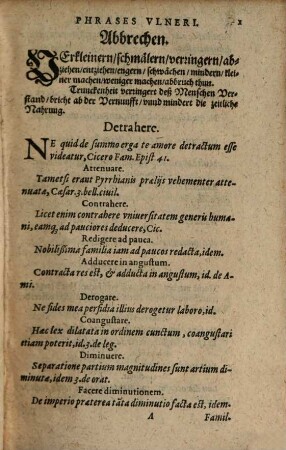 PHRASES VLNERI.
Abbrechen.
VErkleinern/schmälern/verringern/ab
ziehen/entziehen/engern/schwächen/mindern/klei
ner machen/weniger machen/abbruch thun.
Trunckenheit verringert deß Menschen Ver
stand/bricht ab der Vernunfft/vnnd mindert die zeitliche
Nahrung.
Detrahere.
NE quid de summo erga te amore detractum esse
videatur, Cicero Fam. Epist 41.
Attenuare.
Tametsi eraut Pyrrhianis prælijs vehementer atte-
nuata, Cæsar 3. bell. ciuil.
Contrahere.
Licet enim contrahere vniuersitatem generis huma-
ni, eamq, ad pauciores deducere, Cic.
Redigere ad pauca.
Nobilißima familia iam ad paucos redacta, idem.
Adducere in angustum.
Contracta res est, & adducta in angustum, id. de A-
mi.
Derogare.
Ne fides mea perfidia illius derogetur laboro, id.
Coangustare.
Hæc lex dilatata in ordinem cunctum, coangustari
etiam poterit, id. 3. de leg.
Diminuere.
Separatione partium magnitudines sunt artium di-
minutæ, idem 3. de orat.
Facere diminutionem.
De imperio præterea tāta diminutio facta est, idem.
A Famil-